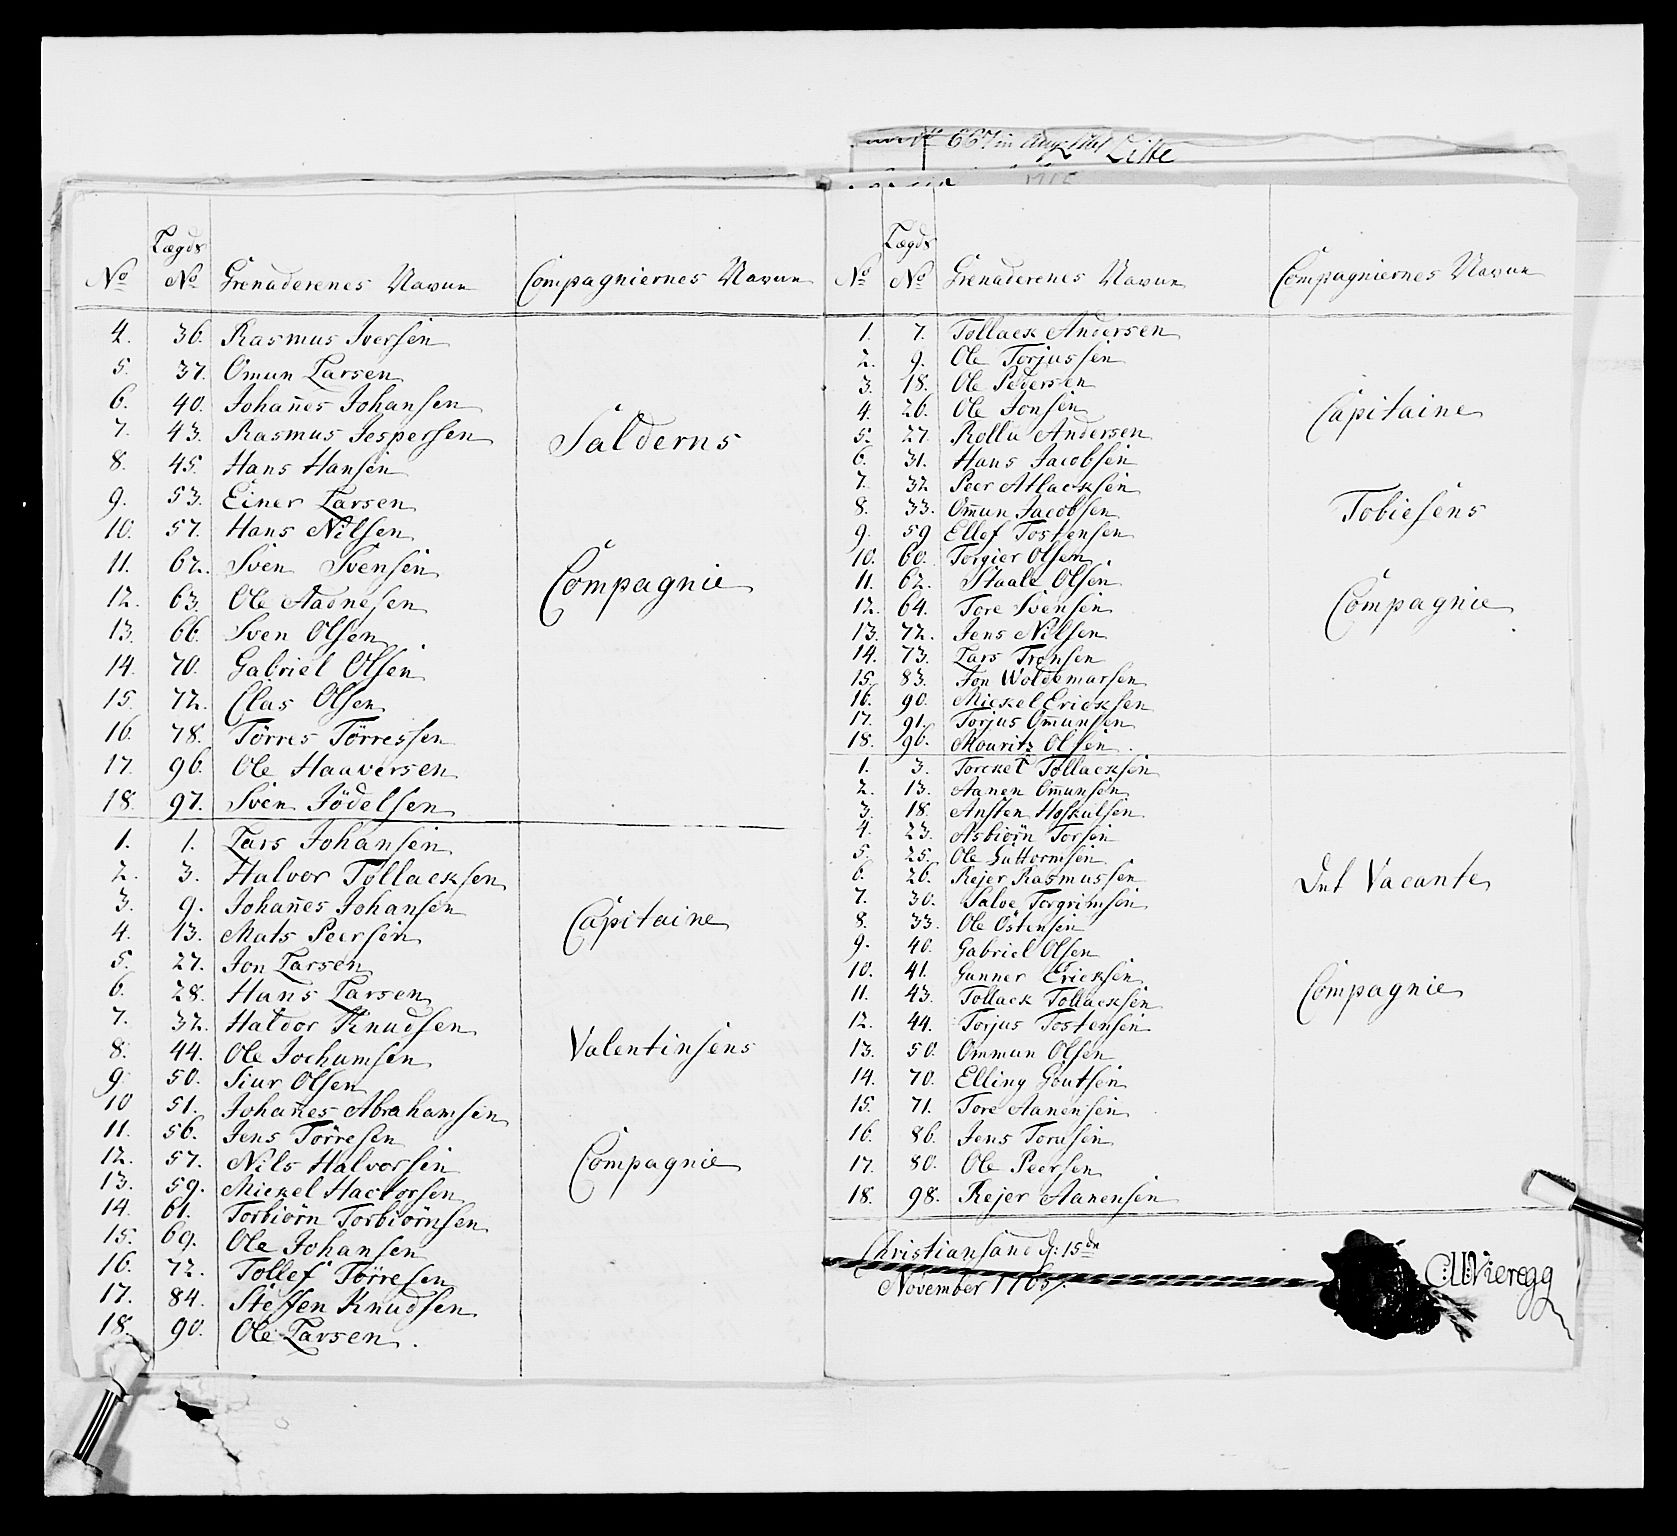 Lægds
No No Grenaderenes Navne Compagniernes Navne
4. 36. Rasmus Iversen
5. 37. Omun Larsen
6. 40. Johañes Johansen
7. 43. Rasmus Jespersen
8. 45. Hans Hansen
9. 53. Einer Larsen
10. 57. Hans Nilsen
11. 62. Sven Svensen
12. 63. Ole Aadnesen
13. 66. Sven Olsen
14. 70. Gabriel Olsen
15. 72. Clas Olsen
16. 78. Törres Törressen
17. 96. Ole Haaversen
18. 97. Sven Jödelsen
Salderns
Compagnie
1. 1. Lars Johansen
2. 3. Halvor Tollacksen
3. 9. Johañes Johansen
4. 13. Mats Peersen
5. 27. Jon Larsen
6. 28. Hans Larsen
7. 32. Haldor Knudsen
8. 44. Ole Jochumsen
9. 50. Siur Olsen
10 51. Johañes Abrahamsen
11. 56. Jens Törresen
12. 57. Nils Halvorsen
13. 59. Mickel Hactorsen
14. 61. Torbiörn Torbiörnsen
15. 69. Ole Johansen
16. 72. Tollef Törresen
17. 84. Steffen Knudsen
18. 90. Ole Larsen.
Capitaine
Valentinsens
Compagnie
Liste
Lægds
No No Grenaderenes Navne Compagniernes Navne
1. 7. Tollack Andersen
2. 9. Ole Torjussen
3. 18. Ole Pedersen
4. 26. Ole Jonsen
5. 27. Rolle Andersen
6. 31. Hans Jacobsen
7. 32 Peer Atlacksen
8. 33. Om̃un Jacobsen
9. 59 Ellef Tostensen
10. 60. Torgier Olsen
11. 62. Staale Olsen
12. 64. Tore Svensen
13. 72. Jens Nilsen
14. 73. Lars Tronsen
15. 83. Jon Woldemarsen
16. 90. Mickel Ericksen
17. 91. Torjus Om̃unsen
18. 96. Mouritz Olsen.
Capitaine
Tobiesens
Compagnie
1. 3. Torckel Tollacksen
2. 13. Aanen Om̃unsen
3. 18. Ansten Hoskulsen
4. 23. Asbiörn Torsen
5. 25. Ole Guttormsen
6. 26. Rejer Rasmussen
7. 30. Salve Torgrimsen
8. 33. Ole Östensen
9. 40. Gabriel Olsen
10. 41. Gunner Ericksen
11. 43. Tollack Tollacksen
12. 44. Torjus Tostensen
13. 50. Ommun Olsen
14. 70. Elling Goutsen
15. 71. Tore Aanensen
16. 86. Jens Toresen
17. 80. Ole Peersen
18. 98. Rejer Aanensen
Det Vacante
Compagnie
Christiansand d: 15de
November
Vieregg